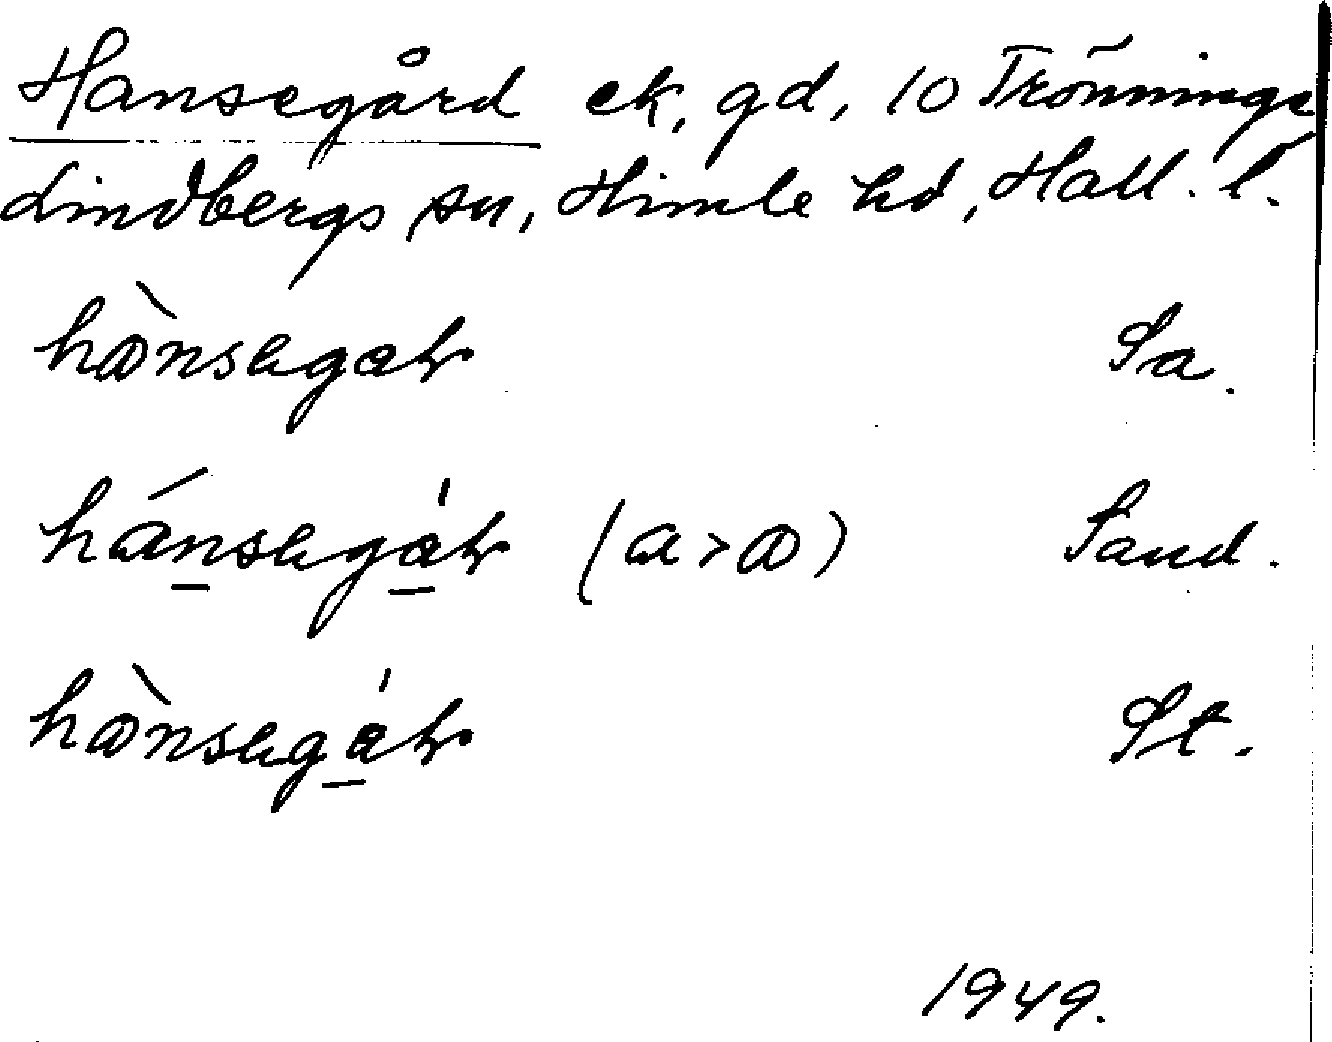 Hansegård ek, gd, 10 Trönninge
Lindbergs sn, Himle hd, Hall. l.
hànsegar Sa.
hánsegár (a>ɑ) Sand.
hànsegár St.
1949.